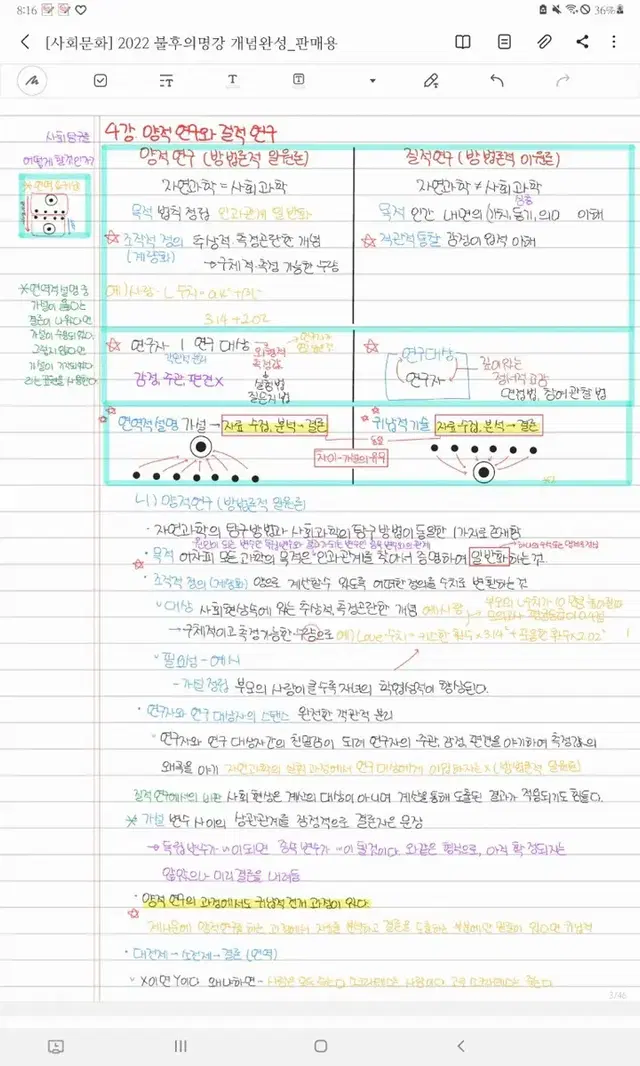 8:16
36%
[사회문화] 2022 불후의명강 개념완성_판매용
사회 탐구는
어떻게 할것인가?
4강. 양적 연구와 질적 연구
양적 연구 (방법론적 일원론)
질적연구 (방법론적 이원론)
자연과학 = 사회과학
자연과학 ≠ 사회과학
목적 법칙 정립 인과관계 일반화
목적 인간 내면의 (가치, 동기, 의미) 이해
조작적 정의 추상적·측정곤란한 개념
(계량화)
→ 구체적·측정 가능한 수량
직관적통찰 감정이입적 이해
3.14 + 2.02
*연역적설명 중
가설이 옳다는
결론이 나왔다면
가설이 수용되었다.
그렇지 않다면
가설이 기각되었다
라는 표현을 사용한다.
연구자 | 연구 대상
감정, 주관, 편견 X
실험법
질문지법
연구대상
연구자
깊이있는
정서적 교감
면접법, 참여관찰법
연역적설명 가설 → 자료 수집, 분석 → 결론
귀납적 기술 자료 수집, 분석 → 결론
차이-가설의 유무
나) 양적연구 (방법론적 일원론)
· 자연과학의 탐구방법과 사회과학의 탐구 방법이 동일한 1가지로 존재함
· 목적 어차피 모든 과학의 목적은 "인과관계를 찾아서 증명하여 일반화하는 것
· 조작적 정의 (계량화) 양으로 계산할수 있도록 어떠한 정의를 수치로 변환하는것
대상 사회현상속에 있는 추상적, 측정곤란한 개념
→ 구체적이고 측정 가능한 수량으로
필요성 - 예시
- 가설정립 부모의 사랑이 클수록 자녀의 학업성적이 향상된다.
· 연구자와 연구 대상자의 스탠스 완전한 객관적 분리
연구자와 연구 대상자간의 친밀감이 되려 연구자의 주관, 감정, 편견을 야기하여 측정값의
왜곡을 야기 자연과학의 실험 과정에서 연구대상에게 이입하지는 X (방법론적 일원론)
질적 연구에서의 비판 사회 현상은 계산의 대상이 아니며 계산을 통해 도출된 결과가 적용되기도 힘들다.
* 가설 변수 사이의 상관관계를 잠정적으로 결론지은 문장
→ 독립변수가 ~이 되면 종속 변수가 ~이 될것이다. 와같은 형식으로, 아직 확정되지는
않았으나 미리 결론을 내려둠
· 양적 연구의 과정에서도 귀납적 전개 과정이 있다.
· 대전제 → 소전제 → 결론 (연역)
X이면 Y이다 왜냐하면 - 사람은 모두 죽는다 소크라테스는 사람이다 고로 소크라테스는 죽는다
3/46